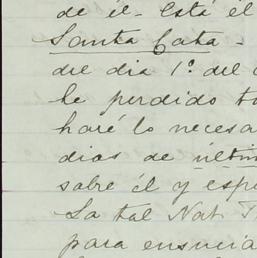 de él. Está el
Santa Cata -
del dia 1º. del
he perdido
haré lo necesa
dias de últim
sobre él y esp
La tal Nat.
para ensucia